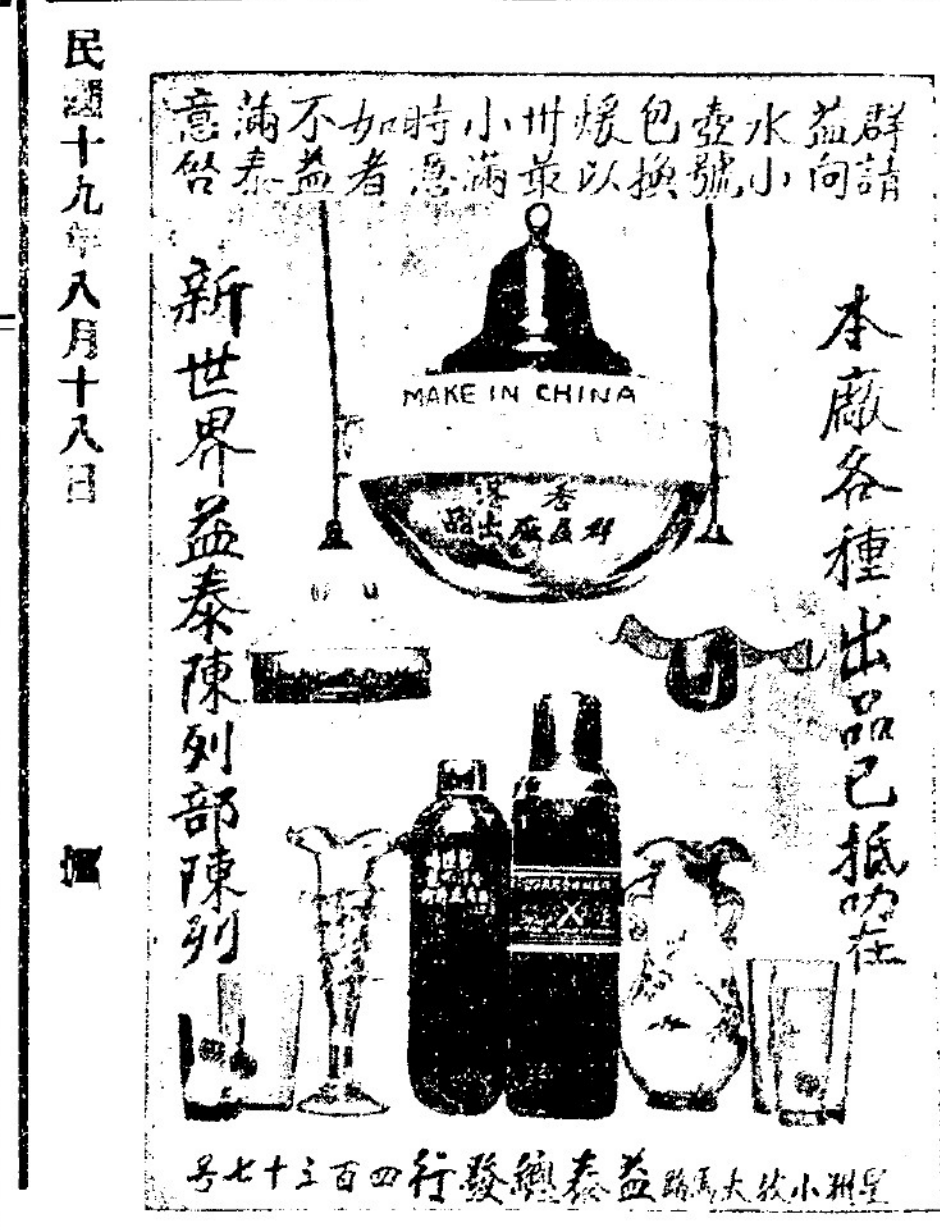 民國十九年八月十八日
群益水壺包煖卅小時如不滿意
請向小號換以最滿意者益泰啓
本廠各種出品已抵叻在
新世界益泰陳列部陳列
MAKE IN CHINA
香港
群益厰出品
星洲小坡大馬路益泰總發行四百三十七号